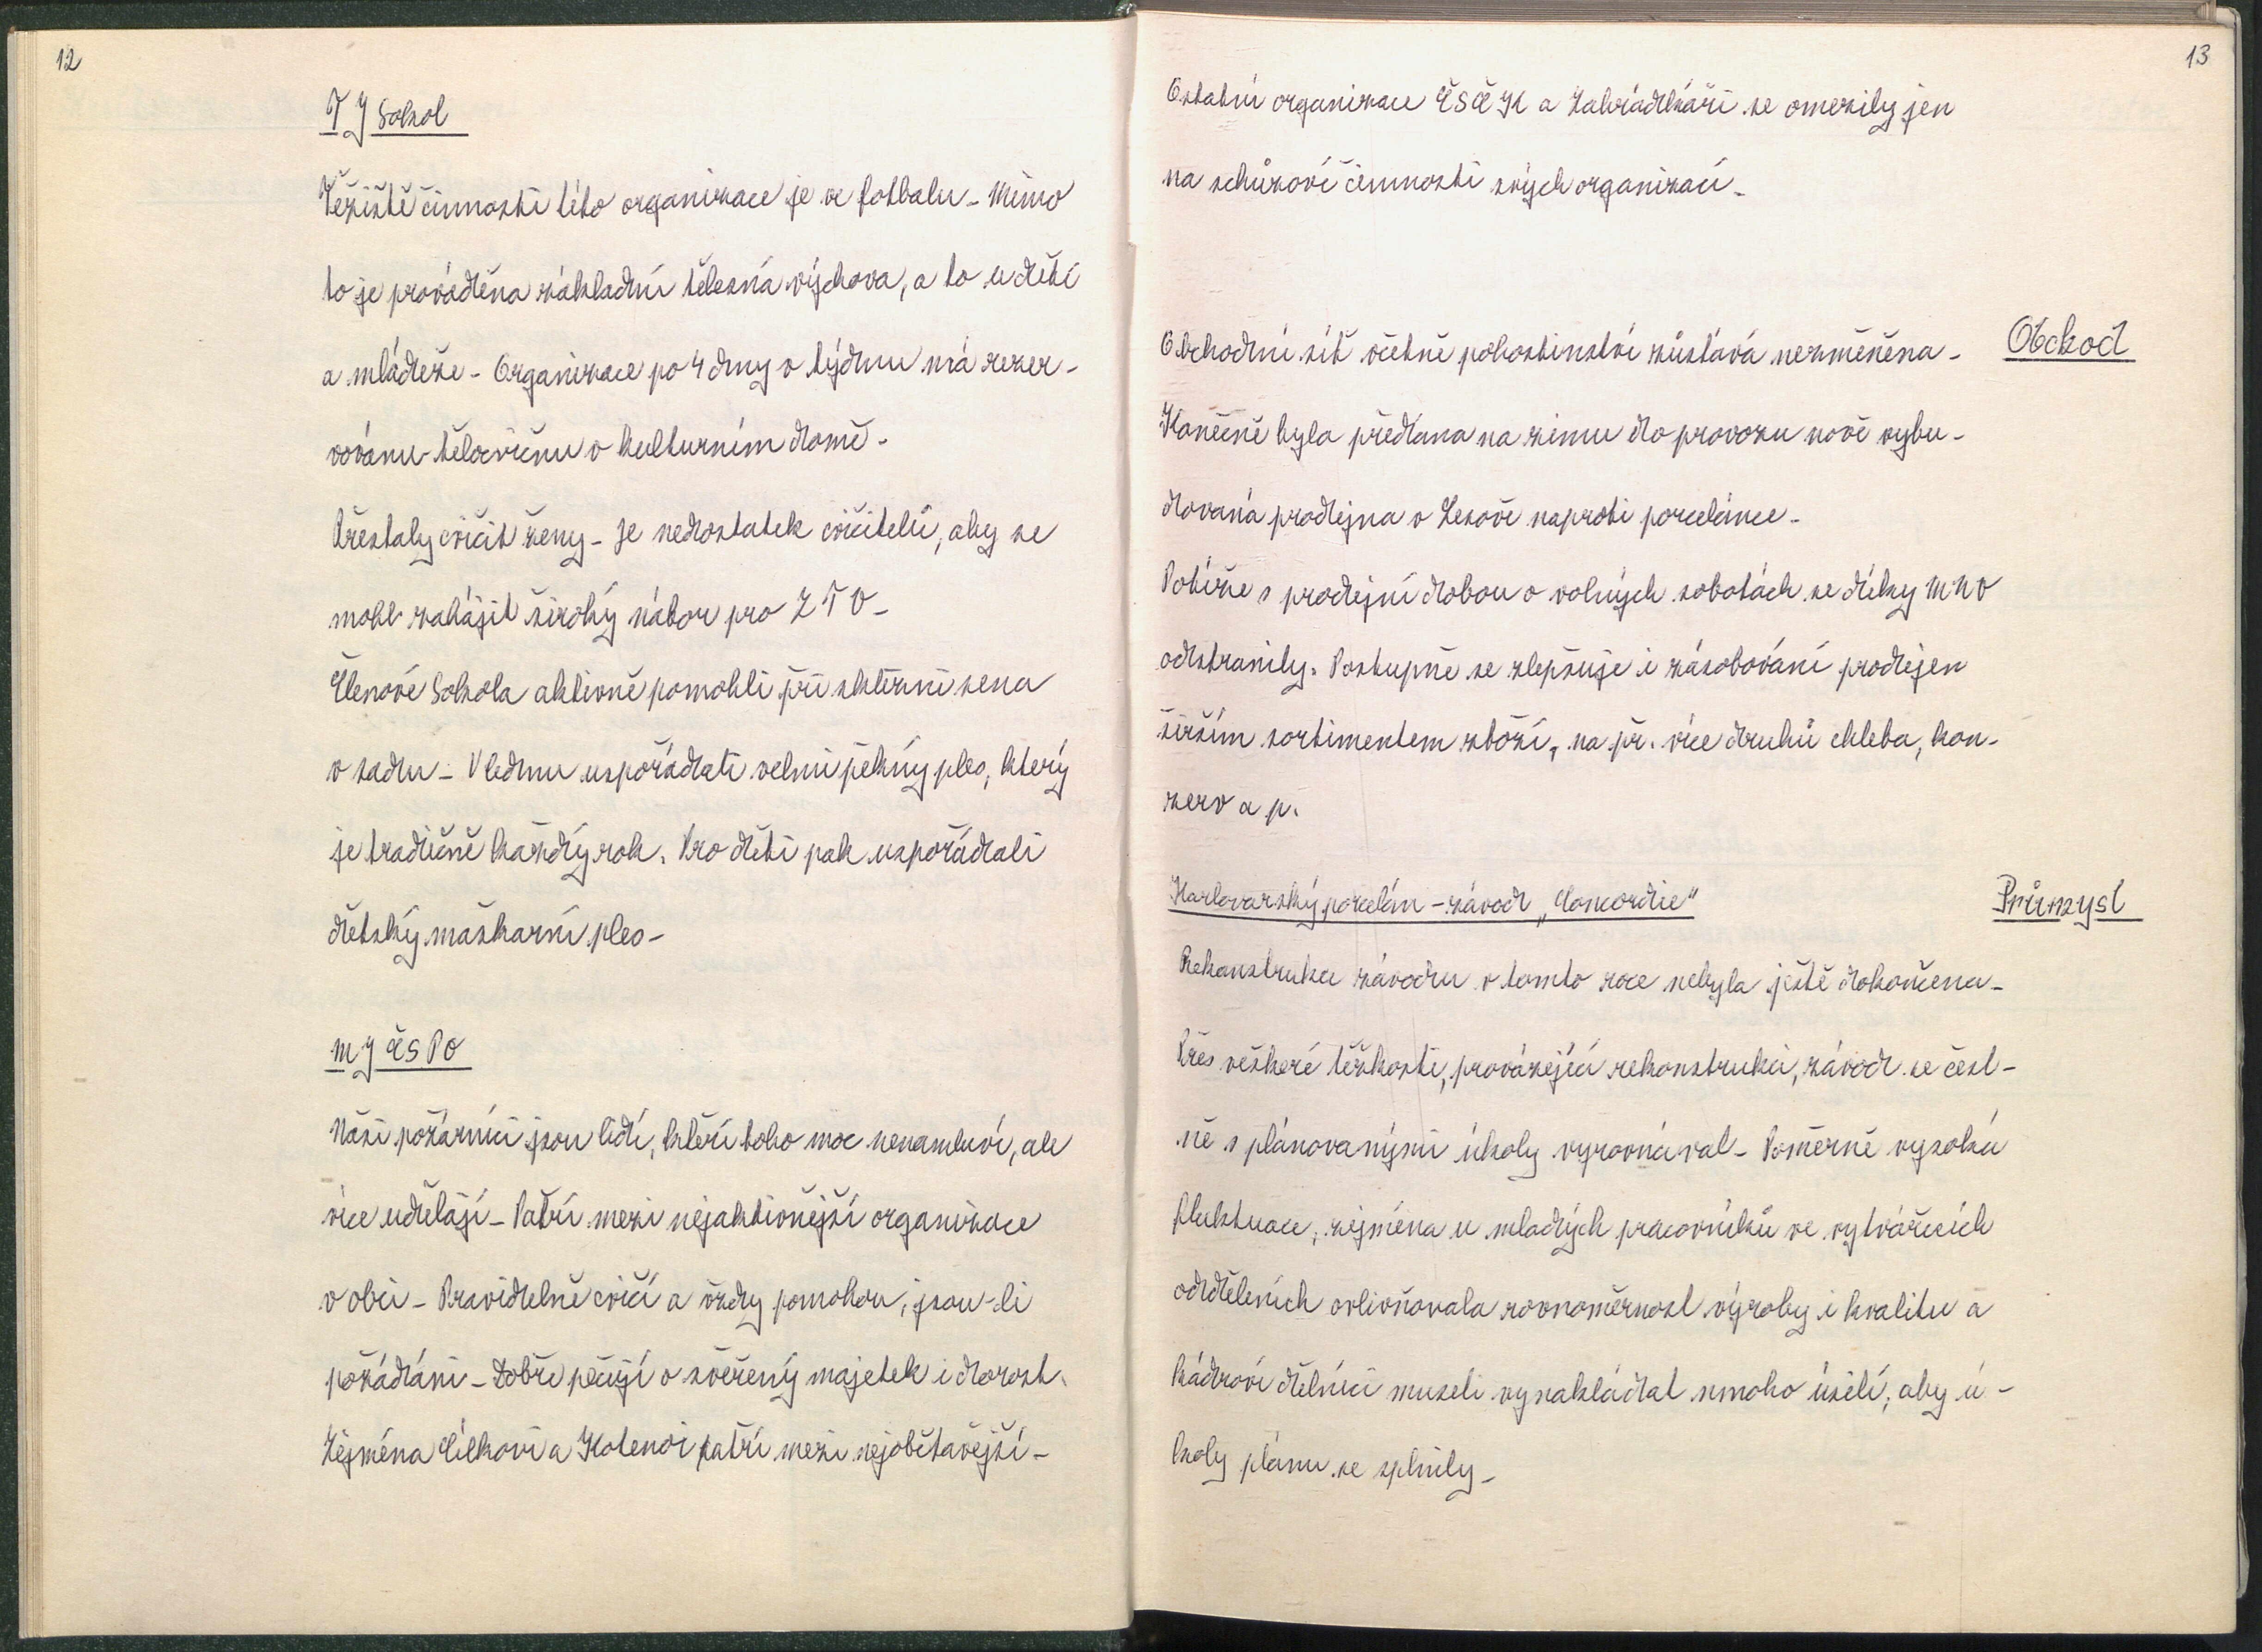 12
TJ Sokol
Těžiště činnosti této organizace je ve fotbalu. Mimo
to je prováděna základní tělesná výchova, a to u dětí
a mládeže. Organizace po 4 dny v týdnu má rezer-
vovánu tělocvičnu v kulturním domě.
Přestaly cvičit ženy. Je nedostatek cvičitelů, aby se
mohl zahájit široký nábor pro ZTV.
Členové Sokola aktivně pomohli při sklizni sena
v sadu. V lednu uspořádali velmi pěkný ples, který
je tradičně každý rok. Pro děti pak uspořádali
dětský maškarní ples.
MJ ČSPO
Naši požárníci jsou lidi, kteří toho moc nenamluví, ale
více udělají. Patří mezi nejaktivnější organizace
v obci. Pravidelně cvičí a vždy pomohou, jsou-li
požádáni. Dobře pečují o svěřený majetek i dorost.
Zejména Cílkovi a Kotenovi patří mezi nejobětavější.
13
Ostatní organizace ČSČK a Zahrádkáři se omezily jen
na schůzoví činnosti svých organizací.
Obchod
Obchodní síť včetně pohostinství zůstává nezměněna.
Konečně byla předána na zimu do provozu nově vybu-
dovaná prodejna v Lesově naproti porcelánce.
Potíže s prodejní dobou o volných sobotách se díky MNV
odstranily. Postupně se zlepšuje i zásobování prodejen
širším sortimentem zboží, na př. více druhů chleba, kon-
zerv a p.
Průmysl
Karlovarský porcelán - závod „Concordie"
Rekonstrukce závodu v tomto roce nebyla ještě dokončena.
Přes veškeré těžkosti, provázející rekonstrukci, závod se čest-
ně s plánovanými úkoly vyrovnával. Poměrně vysoká
fluktuace, zejména u mladých pracovníků ve vytvářecích
odděleních ovlivňovala rovnoměrnost výroby i kvalitu a
kádroví dělníci museli vynakládat mnoho úsilí, aby ú-
koly plánu se splnily.